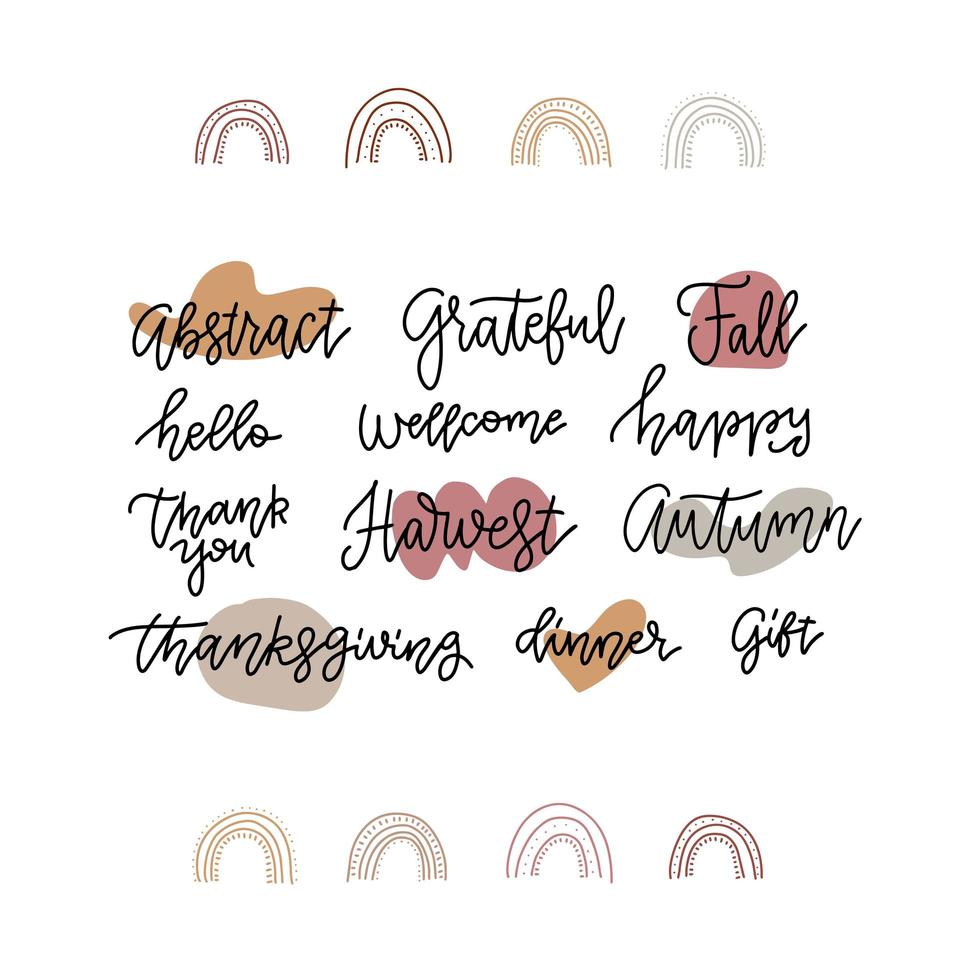 Abstract Grateful Fall
hello Wellcome happy
Thank Harvest Autumn
you
thanksgiving dinner Gift